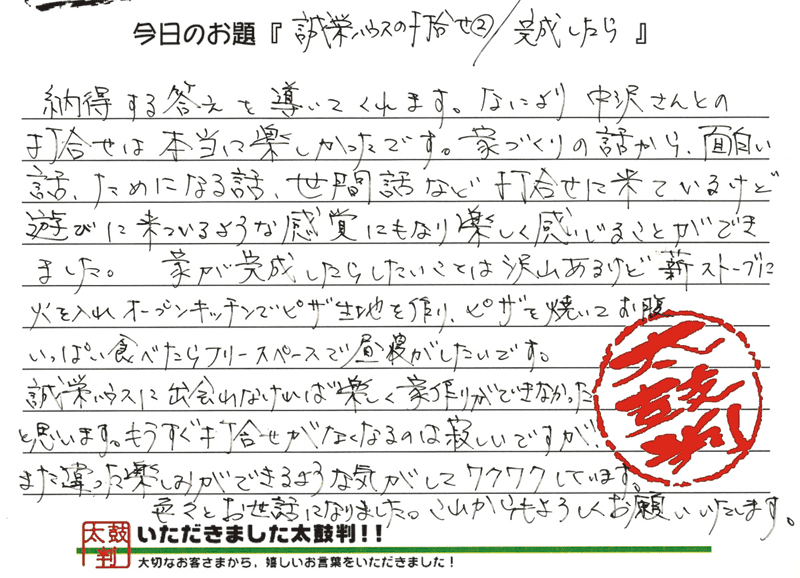 今日のお題『誠栄ハウスの打合せ②/完成したら』
納得する答えを導いてくれます。なにより中沢さんとの
打合せは本当に楽しかったです。家づくりの話から、面白い
話、ためになる話、世間話など打合せに来ているけど
遊びに来ているような感覚にもなり楽しく感いじることができ
ました。 家が完成したらしたいことは沢山あるけど薪ストーブに
火を入れオープンキッチンでピザ生地を作り、ピザを焼いてお腹
いっぱい食べたらフリースペースで昼寝がしたいです。
誠栄ハウスに出会わなければ楽しく家作りができなかった
と思います。もうすぐ打合せがなくなるのは寂しいですが、
また違った楽しみができるような気がしてワクワクしています。
色々とお世話になりました。これからもよろしくお願いいたします。
太鼓判
太鼓判 いただきました太鼓判!!
大切なお客さまから、嬉しいお言葉をいただきました!